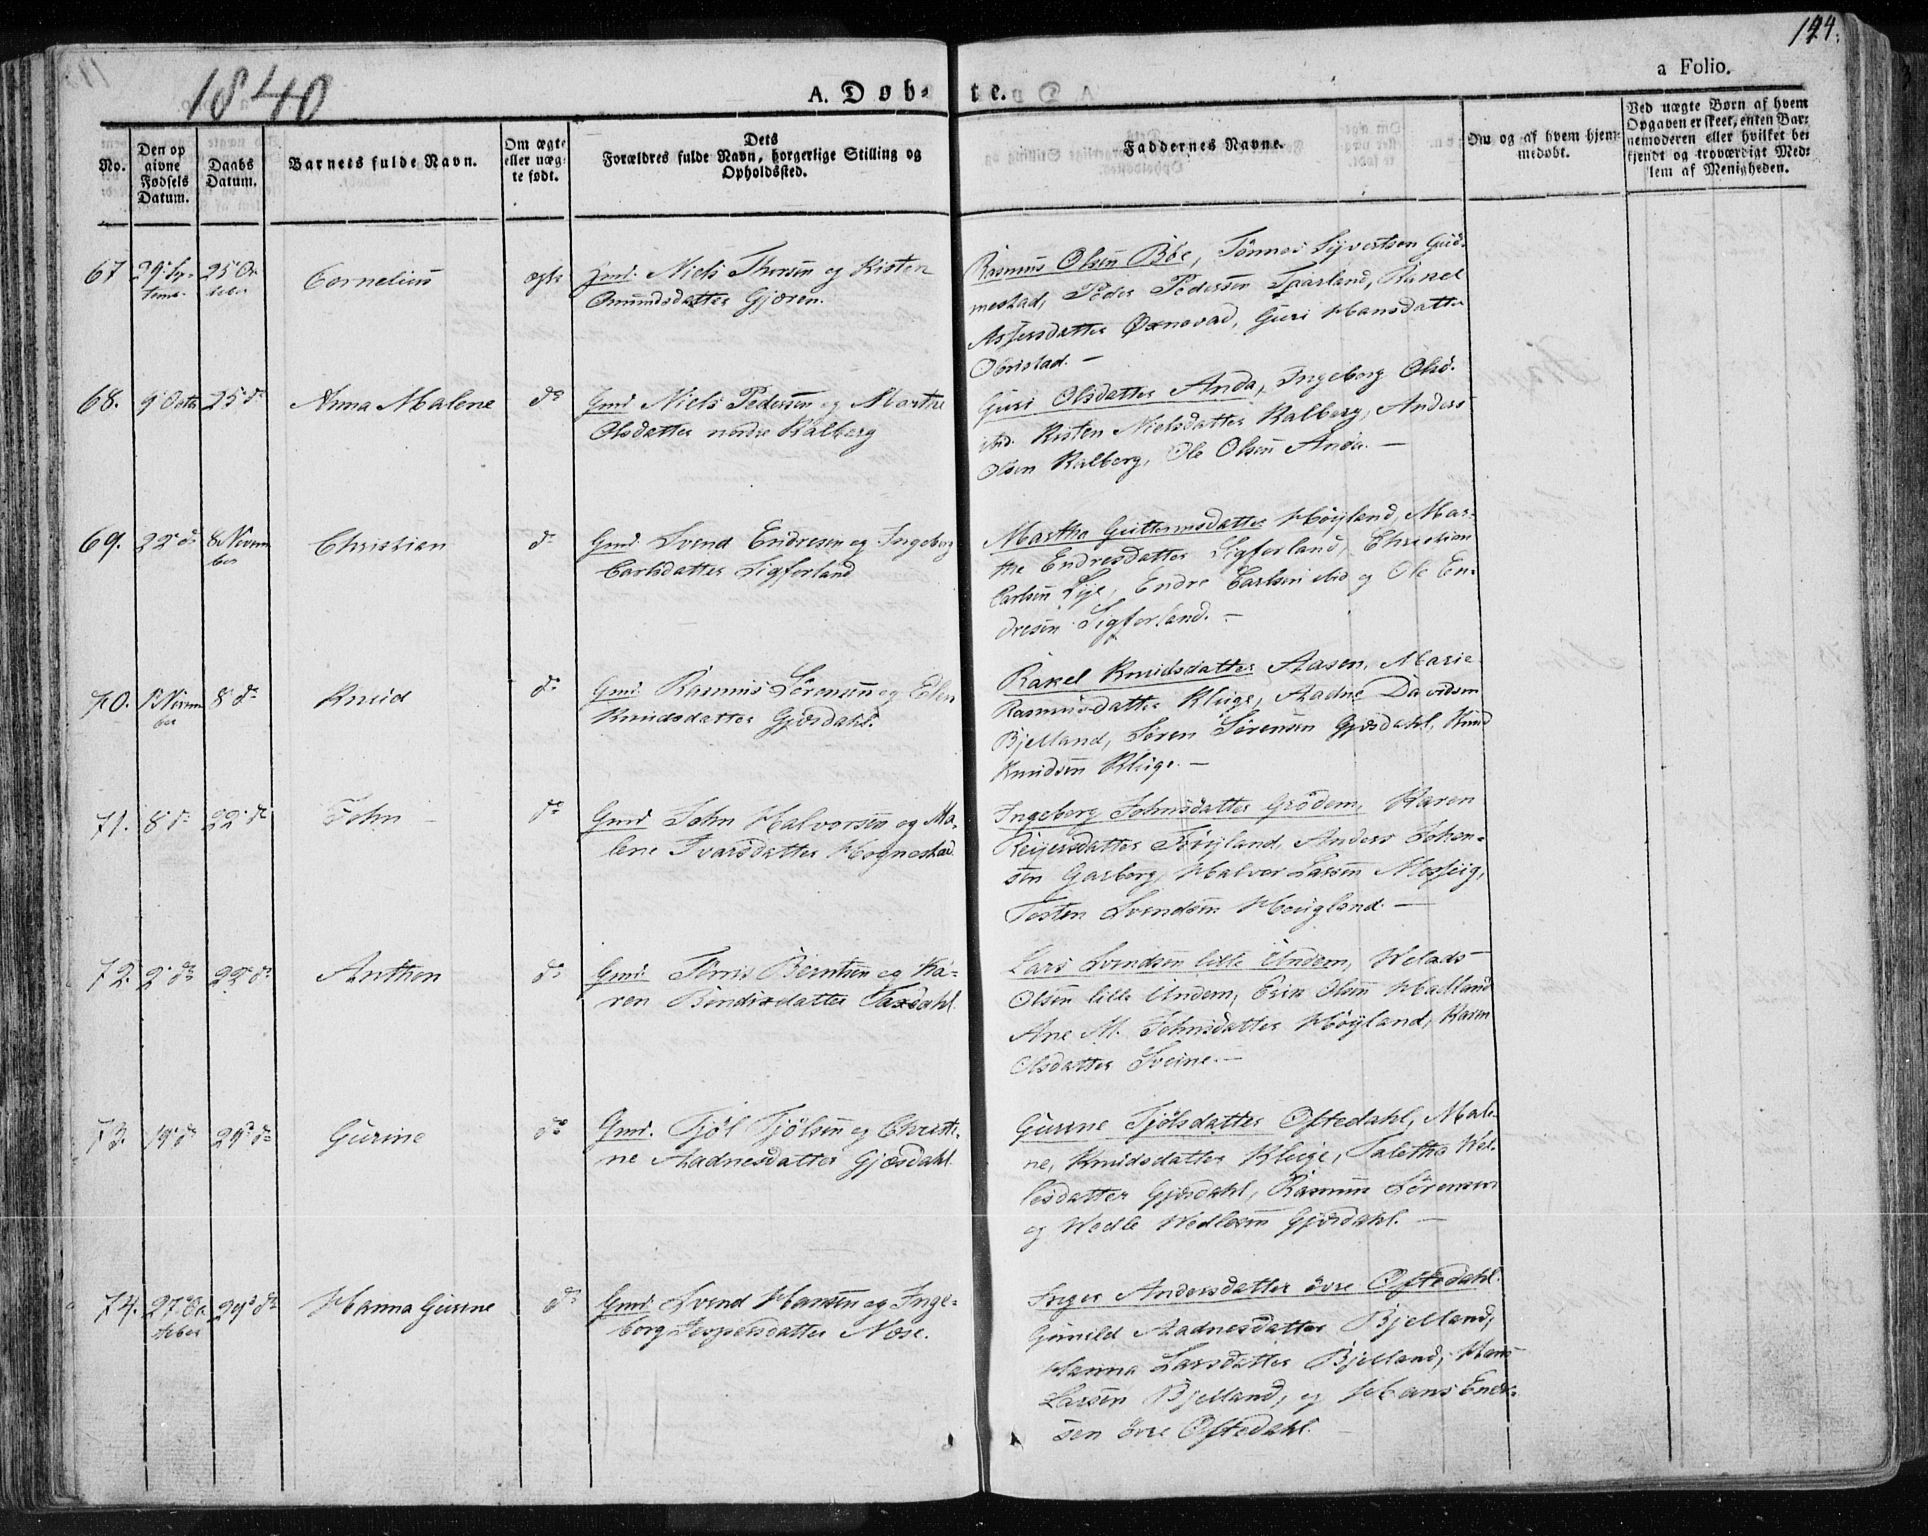 1840
124.
A. Døb-
te.
a Folio.
No.
Den op
givne
Fødsels
Datum.
Daabs
Datum.
Barnets fulde Navn.
Om ægte
eller uæg-
te født.
Dets
Forældres fulde Navn, borgerlige Stilling og
Opholdssted.
Faddernes Navne.
Om og af hvem hjem-
medøbt.
Ved uægte Børn af hvem
Opgaven er skeet, enten Bar-
nemoderen eller hvilket be-
kjendt og troværdigt Med-
lem af Menigheden.
67
Cornelius
ægte
Gmd. Niels Thorsen og Kisten
Omundsdatter Gjøren.
Rasmus Olsen Böe, Tönnes Syvertsen Gud-
mestad, Peder Pedersen Tparland, Rakel
Assersdatter Øxnevad, Guri Hansdatter
Obristad. —
68.
9' Octr
25' do
Anna Malene
do
Gmd. Niels Pedersen og Marthe
Olsdatter nedre Kalberg
Guri Olsdatter Anda, Ingeborg Olsd.
ibid. Kisten Nielsdatter Kalberg, Anders
Olsen Kalberg, Ole Olsen Anda. —
69.
22' do
8 Novem
ber
Christian
do
Gmd. Svend Endresen og Ingeborg
Carlsdatter Sigferland
Martha Guttormsdatter Höyland, Mar-
the Endresdatter Sigferland, Christian
Carlsen Lye, Endre Carlsen ibid og Ole En-
dresen Sigferland. —
70.
8 do
Knud
do
Gmd. Rasmus Sörensen og Elen
Knudsdatter Gjæsdahl.
Rakel Knudsdatter Aasen, Marie
Rasmusdatter Kluge, Aadne Davidsen
Bjelland, Sören Sörensen Gjæsdahl, Knud
Knudsen Kluge. —
71.
8' do
22' do
John
do
Gmd. John Halvorsen og Ma-
lene Ivarsdatter Hognestad
Ingeborg Johnsdatter Grödem, Karen
Reijersdatter Töryland, Anders John-
sen Garborg, Halvor Larsen Mossig,
Tosten Svendsen Hougland. —
72.
2' do
22' do
Anthon
do
Gmd. Torris Berntsen og Ka-
ren Bendixdatter Taxdahl.
Lars Svendsen lille Undem, Velads
Olsen lille Undem, Erik Olsen Malland
Ane M. Johnsdatter Höyland, Karen
Olsdatter Sveine. —
73.
19' do
29' do
Gurine
do
Gmd. Tjöl Tjölsen og Christi-
ne Aadnesdatter Gjæsdahl.
Gurine Tjölsdatter Oftedahl, Male-
ne, Knudsdatter Kluge, Taletha Vel-
lesdatter Gjæsdahl, Rasmus Sörensen
og Vedle Vedlesen Gjæsdahl. —
74.
27' Oc
tober
29' do
Hanna Gurine
do
Gmd. Svend Hansen og Inge-
borg Jespersdatter Næse.
Inger Andersdatter övre Oftedahl.
Gunild Aadnesdatter Bjelland,
Hanna Larsdatter Bjelland, Hans
Larsen Bjelland, og Hans End-
sen övre Oftedahl.